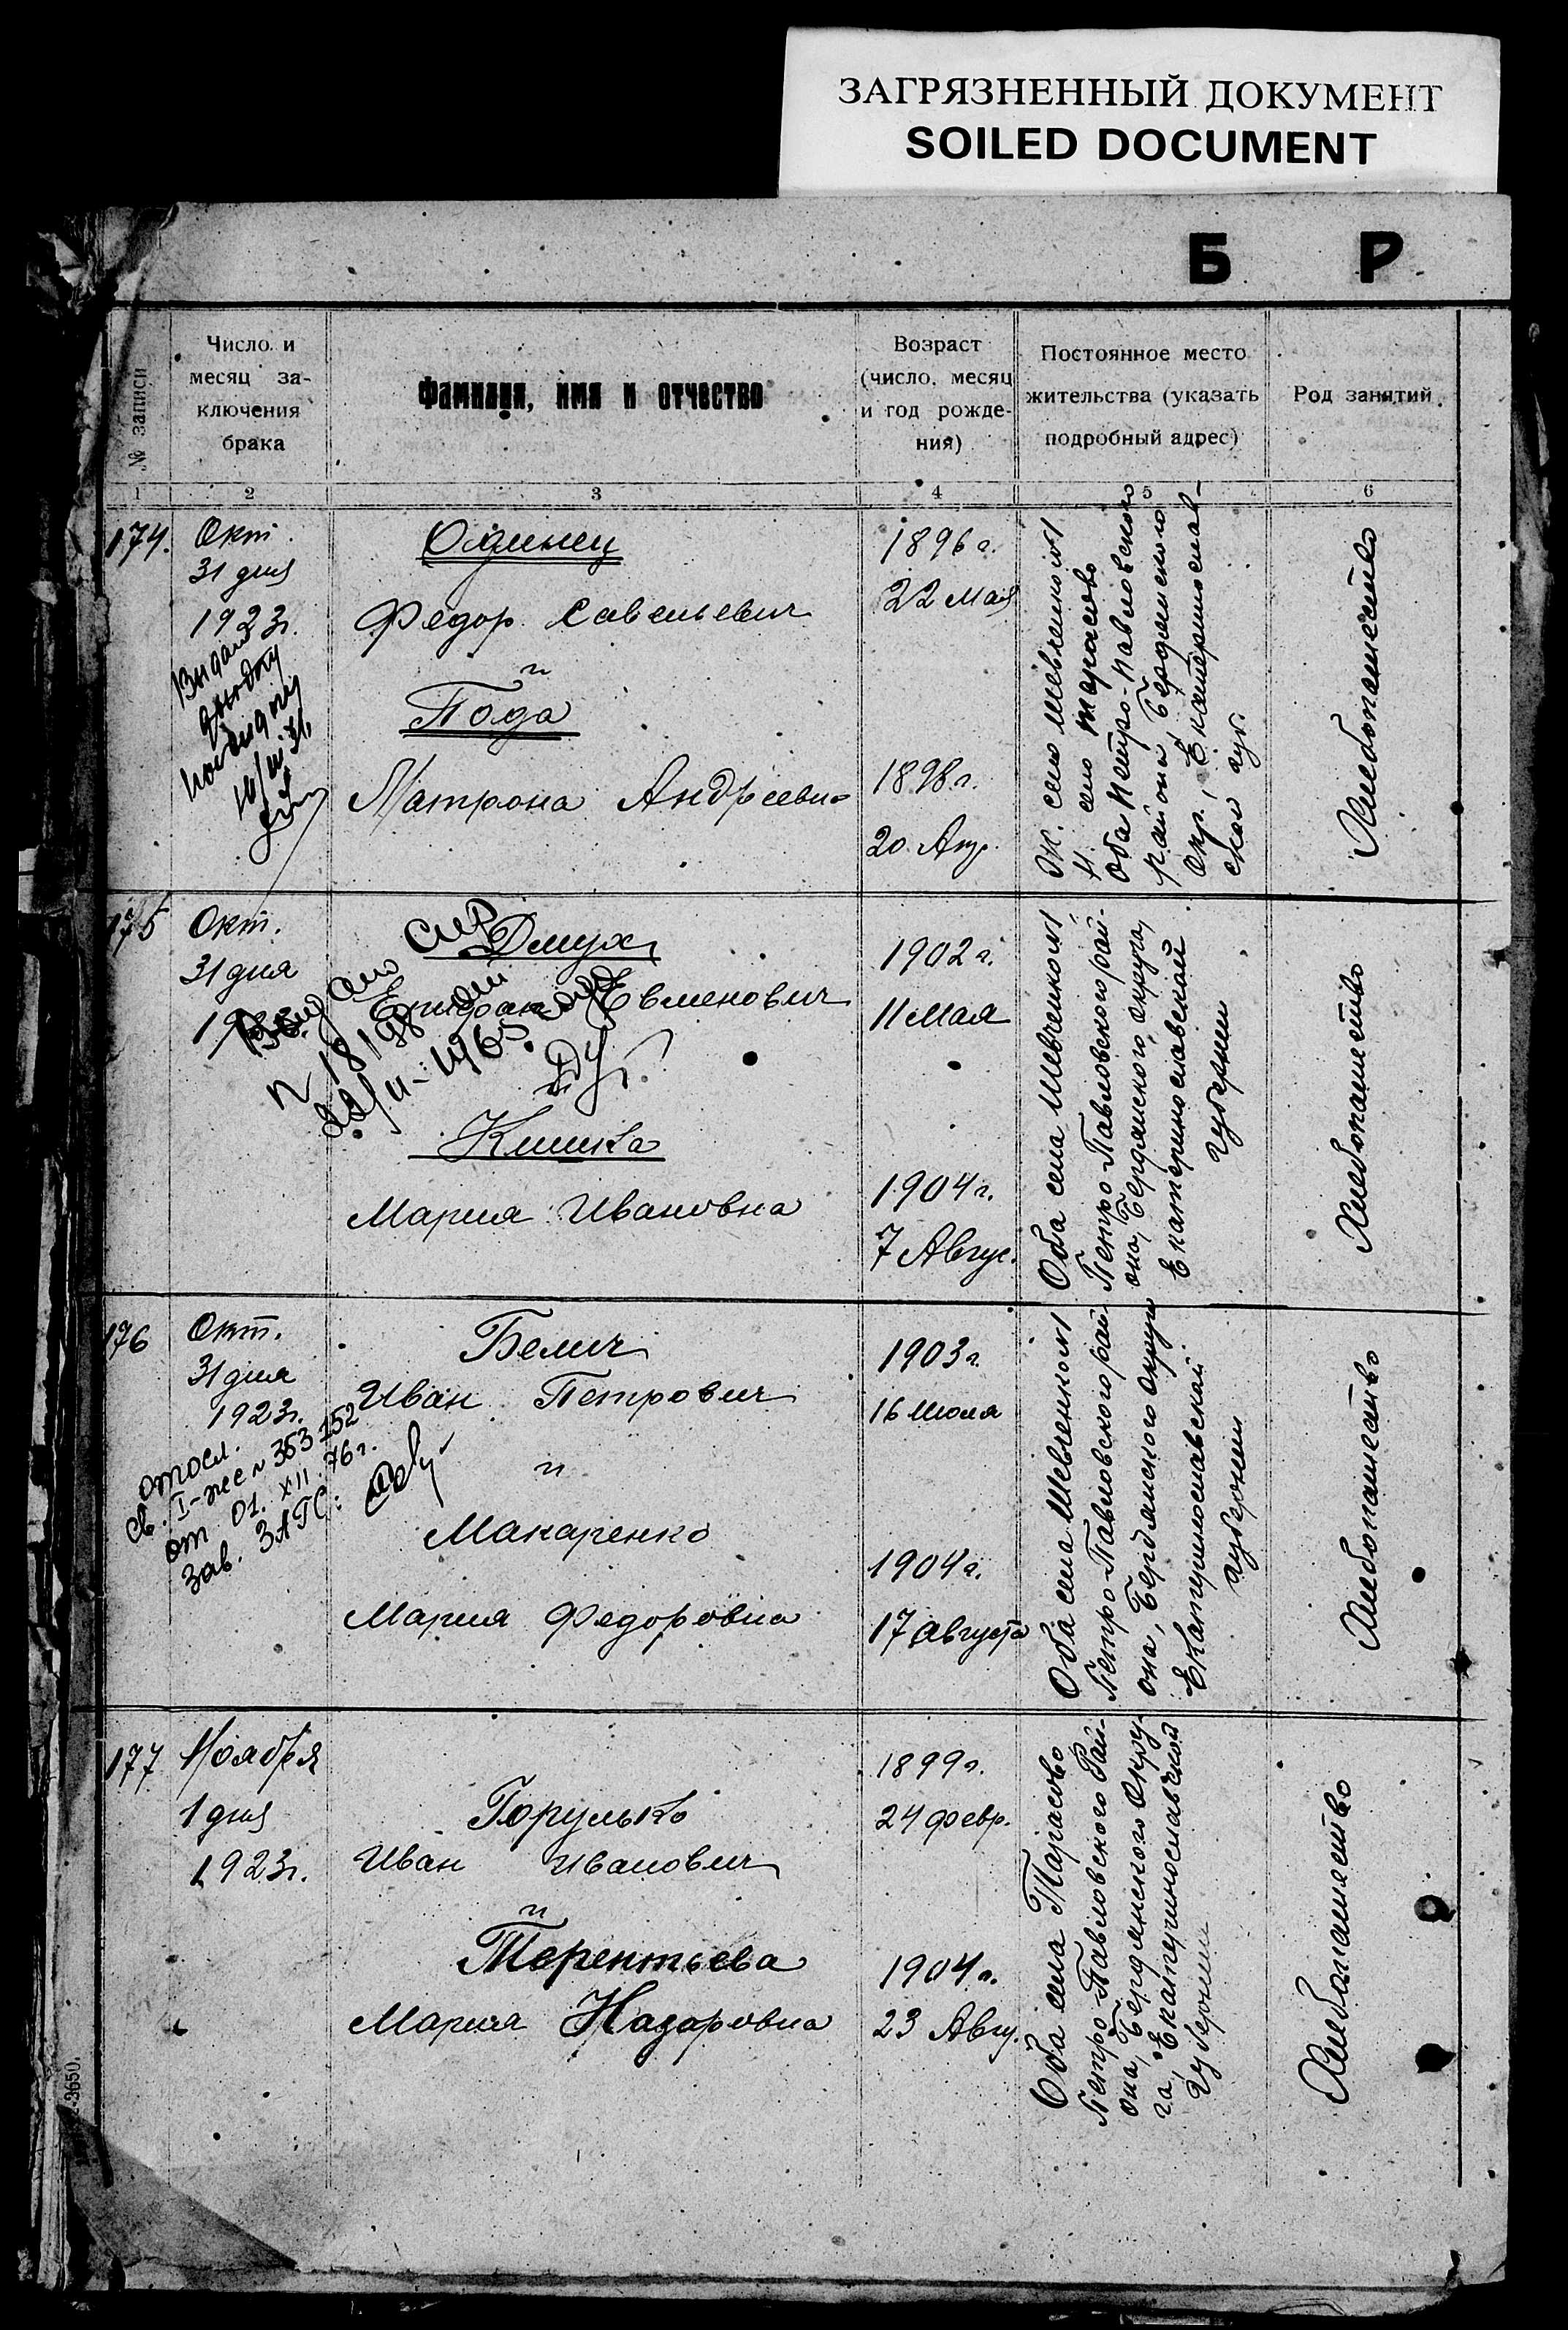 ЗАГРЯЗНЕННЫЙ ДОКУМЕНТ
SOILED DOCUMENT
Б Р
№ записи
Число и
месяц за-
ключения
брака
Фамилия, имя и отчество
Возраст
(число, месяц
и год рожде-
ния)
Постоянное место
жительства (указать
подробный адрес)
Род занятий
1
2
3
4
5
6
174.
Окт.
31 дня
1923г.
Одинец
Федор Савельевич
и
Пода
Матрона Андреевна
1896 г.
22 Мая
1898 г.
20 Апр.
Ж. село Шевченково
Н. село Тарасово
Оба Петро-Павловского
района, Бердянского
окр., Екатеринослав-
ской губ.
Хлебопашество
175
Окт.
31 дня
1923г.
Дмух
Евменович
Кишка
Мария Ивановна
1902 г.
11 Мая
1904 г.
7 Авгус.
Оба села Шевченково
Петро-Павловского рай-
она, Бердянского, округа,
Екатеринославской
губернии
Хлебопашество
176
Окт.
31 дня
1923г.
отосл.
св. I-ж N 353152
от 01. XII. 76 г.
зав. ЗАГС:
Белич
Иван Петрович
и
Макаренко
Мария Федоровна
1903 г.
16 Июля
1904 г.
17 августа
Оба села Шевченково
Петро-Павловского рай-
она, Бердянского округа
Екатеринославской
губернии
Хлебопашество
177
Ноября
1 дня
1923г.
Горулько
Иван Иванович
и
Терентьева
Мария Назаровна
1899 г.
24 февр.
1904 г.
23 Авгу.
Оба села Тарасово
Петро-Павловского Рай-
она, Бердянского Окру-
га, Екатеринославской
Губернии
Хлебопашество